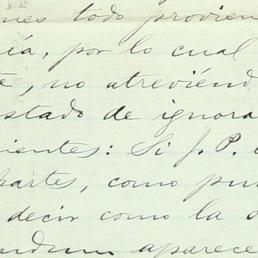 nes todo provien
ía, por lo cual
te, no atreviénd
stado de ignora
ientes: Si J. P.
partes, como pu
decir como la
undum aparece